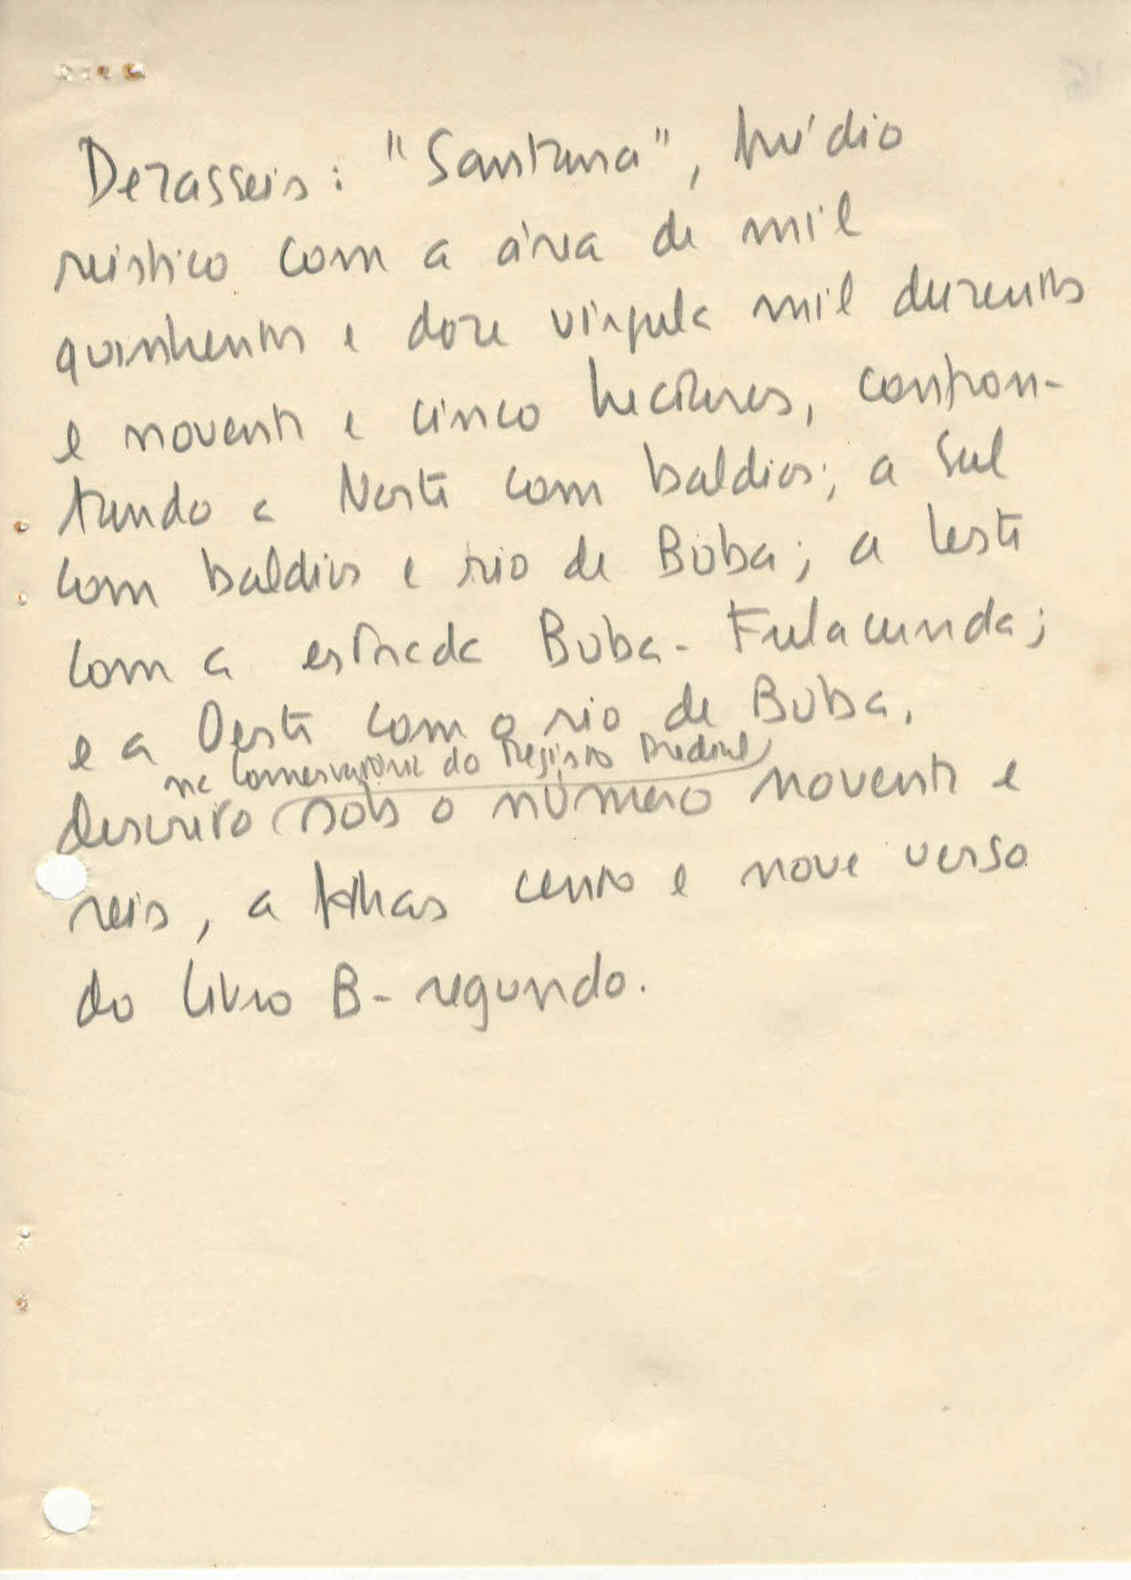 Dezasseis: "Santana", prédio
rústico com a área de mil
quinhentos e doze vírgula mil duzentos
e noventa e cinco hectares, confron-
tando a Norte com baldios; a Sul
com baldios e rio de Buba; a leste
com a estrada Buba-Fulacunda;
e a Oeste com o rio de Buba,
na Conservatória do Registo Predial
descrito sob o número noventa e
seis, a folhas cento e nove verso
do livro B-segundo.